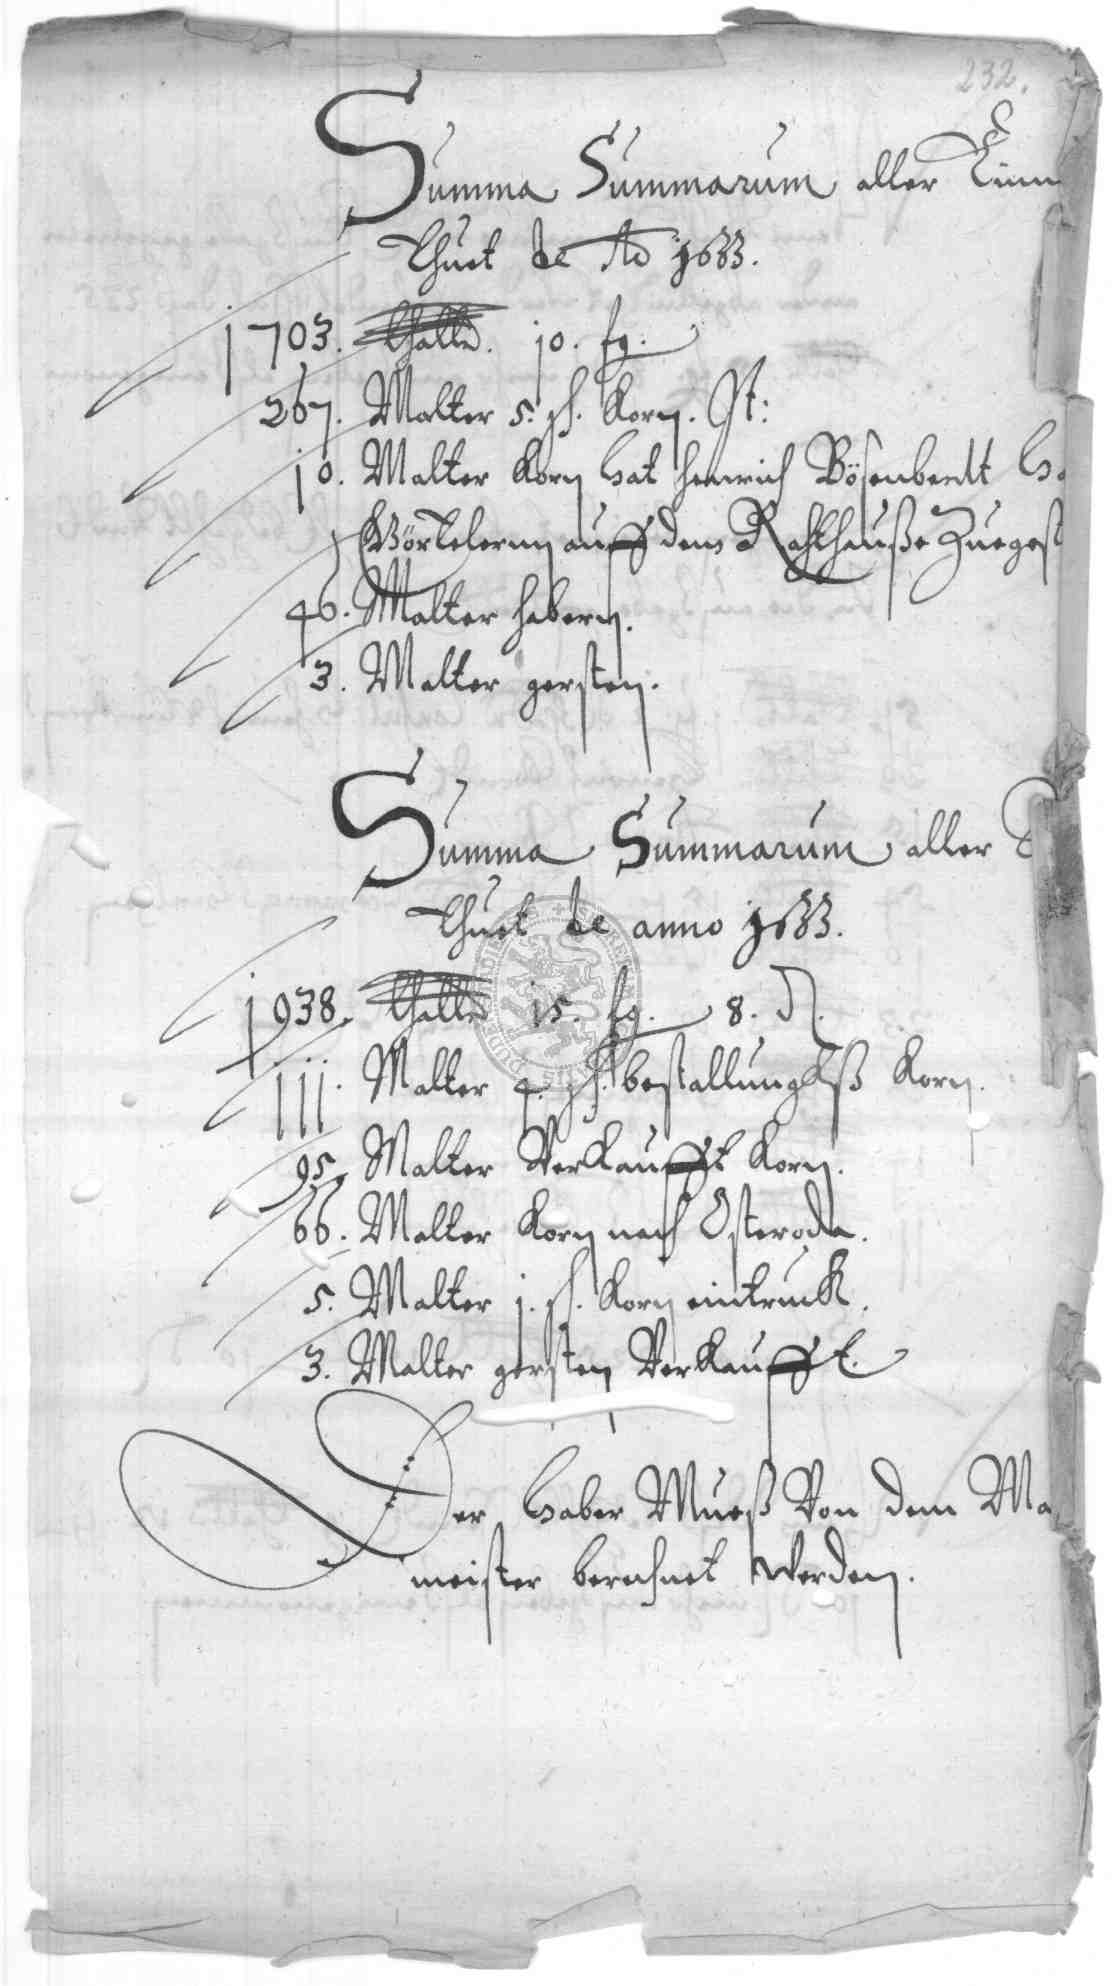 232.
Summa Summarum aller Einn
Thuet de Ao 1633.
1703. Thaller. 10. fg.
267. Malter 5. hh. Korn. St:
10. Malter Korn hat Henrich Bösenbertt
auff dem Rahthauße Zuegest
46. Malter habern.
3. Malter gersten.
Summa Summarum aller
Thuet de anno 1633.
1938. Thaller 15. fg. 8. d.
111. Malter 4. hh. bestallungkß Korn.
95. Malter Verkaufft Korn.
66. Malter Korn nach Osteroda.
5. Malter 1. hh. Korn eintruck.
3. Malter gersten Verkaufft.
Der haber Mueß Von dem Ma
meister berechnet Werden.